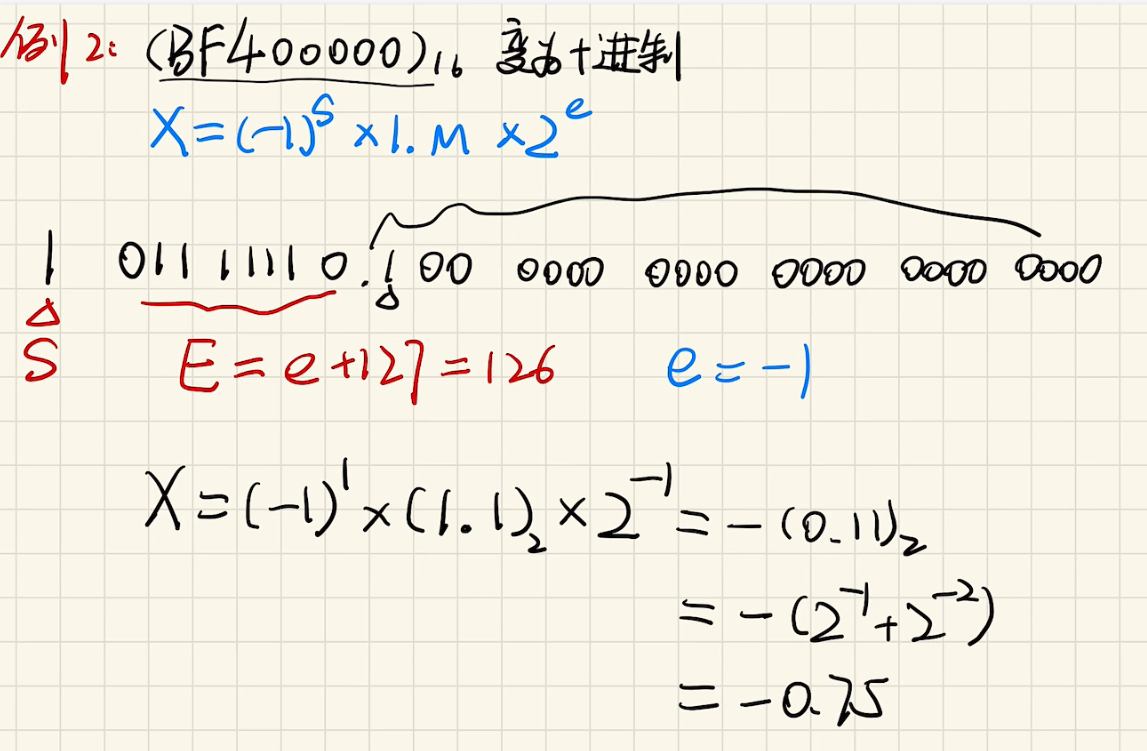 例2: (BF400000)₁₆ 变为十进制
X=(-1)^S ×1.M ×2^e
1 01111110.100 0000 0000 0000 0000 0000
S E=e+127=126 e=-1
X=(-1)^1×(1.1)₂×2^-1=-(0.11)₂
=-(2^-1+2^-2)
=-0.75